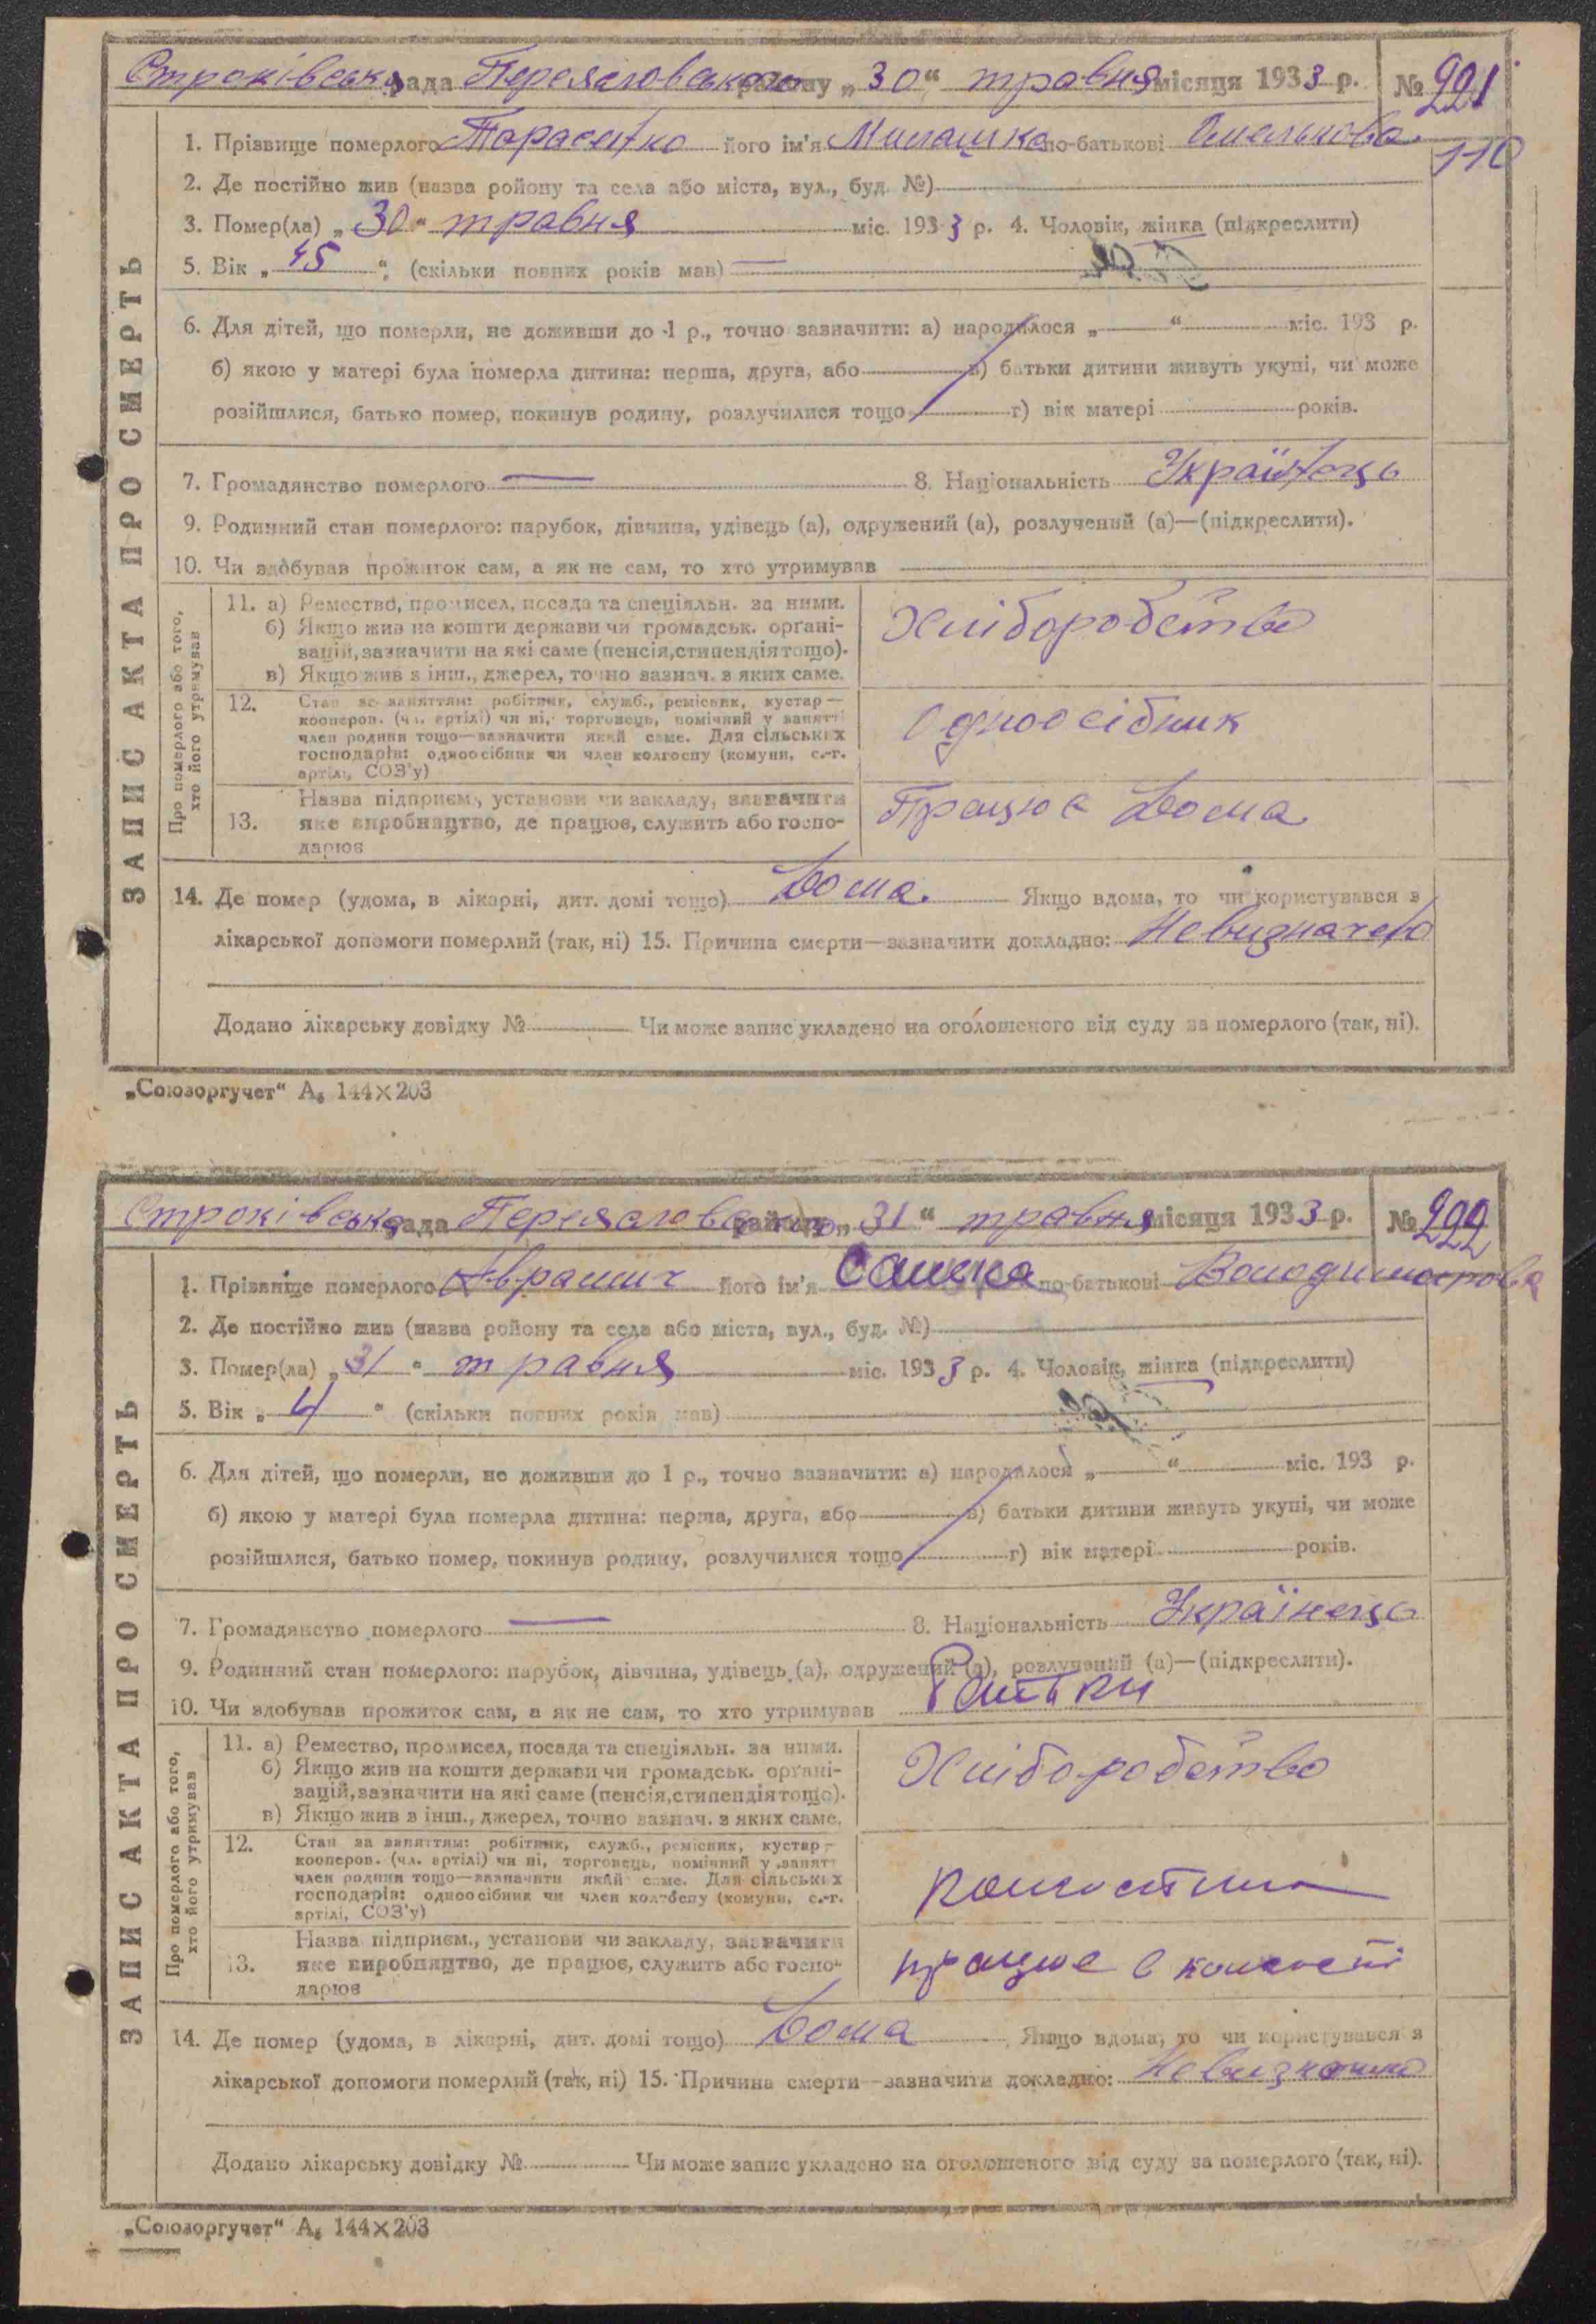 Строківська рада Переяславського району „30“ травня місяця 1933 р. № 221
110
1. Прізвище померлого Тарасенко його ім'я Милашка по-батькові Омелькова
2. Де постійно жив (назва ройону та села або міста, вул., буд. №)
3. Помер(ла) „30“ травня міс. 1933 р. 4. Чоловік, жінка (підкреслити)
5. Вік „45“, (скільки повних років мав) —
6. Для дітей, що померли, не доживши до 1 р., точно зазначити: а) народилося „ “ міс. 193 р.
б) якою у матері була померла дитина: перша, друга, або в) батьки дитини живуть укупі, чи може
розійшлися, батько помер, покинув родину, розлучилися тощо г) вік матері років.
7. Громадянство померлого — 8. Національність Українець
9. Родинний стан померлого: парубок, дівчина, удівець (а), одружений (а), розлучений (а)—(підкреслити).
10. Чи здобував прожиток сам, а як не сам, то хто утримував
Про померлого або того, хто його утримував
11. а) Ремество, промисел, посада та спеціяльн. за ними.
б) Якщо жив на кошти держави чи громадськ. органі-
зацій, зазначити на які саме (пенсія, стипендія тощо).
в) Якщо жив з інш., джерел, точно зазнач. з яких саме.
Хліборобство
12. Стан за заняттям: робітник, служб., ремісник, кустар—
кооперов. (чл. артілі) чи ні, торговець, помічний у занятті
член родини тощо—зазначити який саме. Для сільських
господарів: одноосібник чи член колгоспу (комуни, с.-г.
артілі, СОЗ'у)
Одноосібник
13. Назва підприєм., установи чи закладу, зазначити
яке виробництво, де працює, служить або госпо-
дарює
Працює Дома
14. Де помер (удома, в лікарні, дит. домі тощо) Дома. Якщо вдома, то чи користувався з
лікарської допомоги померлий (так, ні) 15. Причина смерти—зазначити докладно: Невизначено
Додано лікарську довідку № Чи може запис укладено на оголошеного від суду за померлого (так, ні).
ЗАПИС АКТА ПРО СМЕРТЬ
„Союзоргучет“ А₆ 144×203
Строківська рада Переяславського району „31“ травня місяця 1933 р. № 222
1. Прізвище померлого Аврамич його ім'я Сашка по-батькові Володимирова
2. Де постійно жив (назва ройону та села або міста, вул., буд. №)
3. Помер(ла) „31“ травня міс. 1933 р. 4. Чоловік, жінка (підкреслити)
5. Вік „4“ (скільки повних років мав)
6. Для дітей, що померли, не доживши до 1 р., точно зазначити: а) народилося „ “ міс. 193 р.
б) якою у матері була померла дитина: перша, друга, або в) батьки дитини живуть укупі, чи може
розійшлися, батько помер, покинув родину, розлучилися тощо г) вік матері років.
7. Громадянство померлого — 8. Національність Українець
9. Родинний стан померлого: парубок, дівчина, удівець (а), одружений (а), розлучений (а)—(підкреслити).
10. Чи здобував прожиток сам, а як не сам, то хто утримував Батьки
Про померлого або того, хто його утримував
11. а) Ремество, промисел, посада та спеціяльн. за ними.
б) Якщо жив на кошти держави чи громадськ. органі-
зацій, зазначити на які саме (пенсія, стипендія тощо).
в) Якщо жив в інш., джерел, точно зазнач. з яких саме.
Хліборобство
12. Стан за заняттям: робітник, служб., ремісник, кустар—
кооперов. (чл. артілі) чи ні, торговець, помічний у занятт
член родини тощо—зазначити який саме. Для сільських
господарів: одноосібник чи член колгоспу (комуни, с.-г.
артілі, СОЗ'у)
13. Назва підприєм., установи чи закладу, зазначити
яке виробництво, де працює, служить або госпо-
дарює
працює в колгоспі
14. Де помер (удома, в лікарні, дит. домі тощо) Дома Якщо вдома, то чи користувався з
лікарської допомоги померлий (так, ні) 15. Причина смерти—зазначити докладно: Невизначено
Додано лікарську довідку № Чи може запис укладено на оголошеного від суду за померлого (так, ні).
ЗАПИС АКТА ПРО СМЕРТЬ
„Союзоргучет“ А₆ 144×203